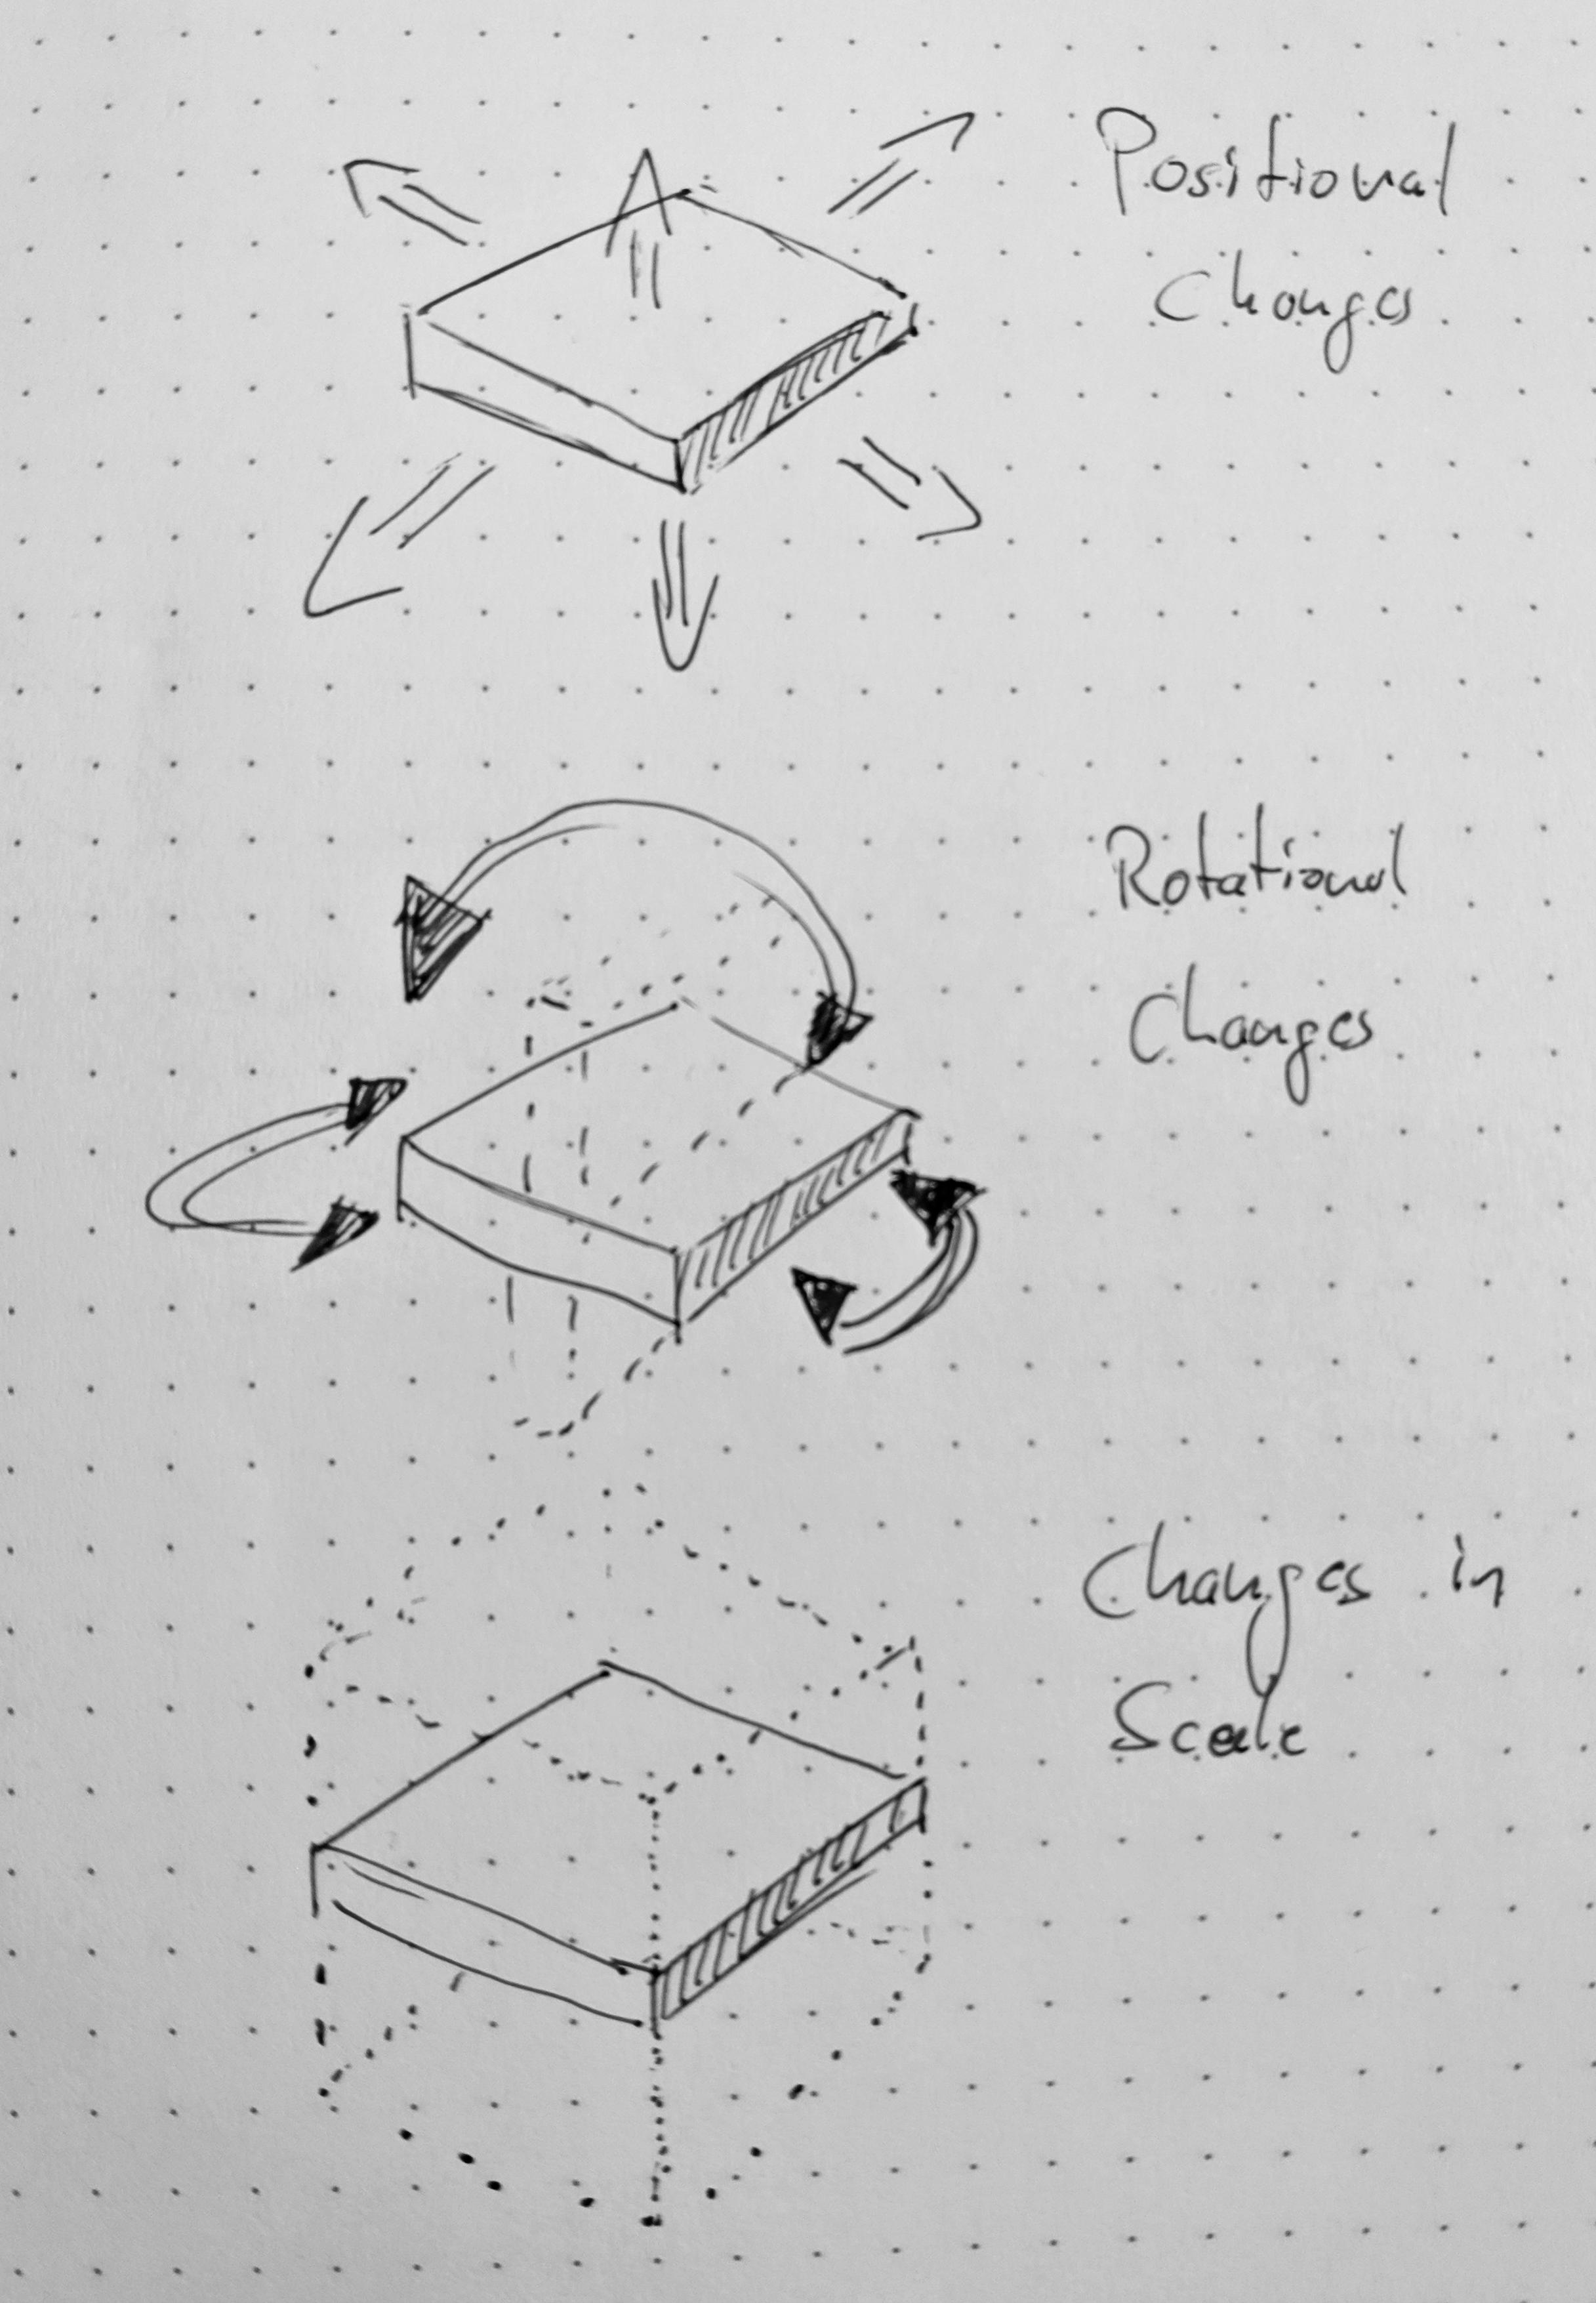 Positional
Changes
Rotational
Changes
Changes in
Scale